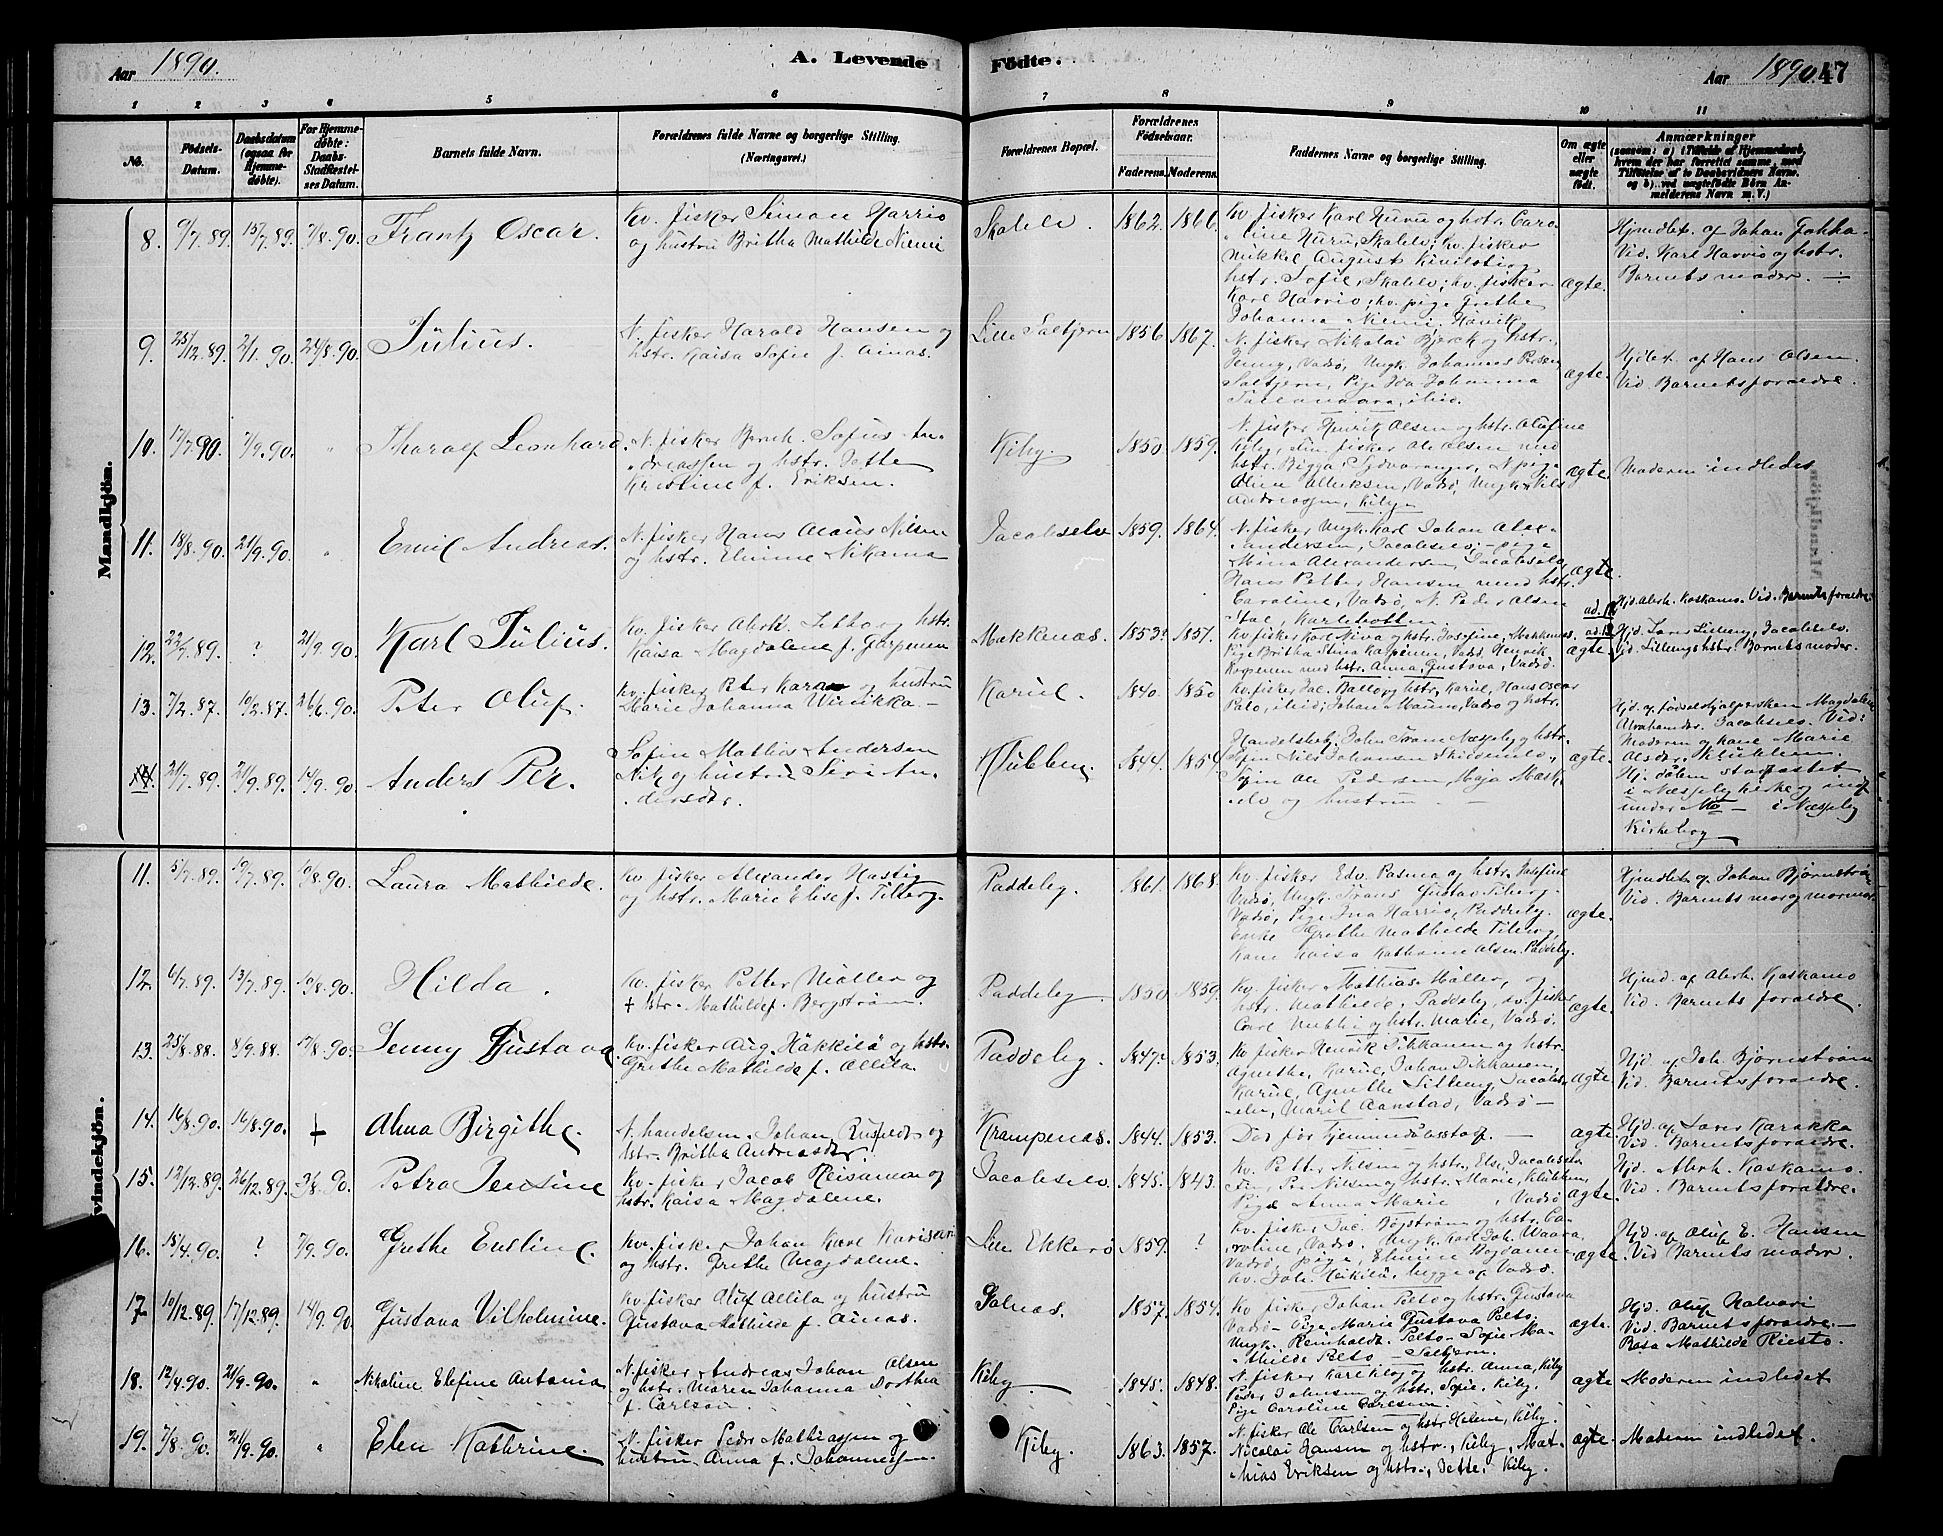 Aar 1890.
A. Levende
Födte.
Aar 1890. 47
1 2 3 4 5 6 7 8 9 10 11
No.
Födsels-
Datum.
Daabsdatum
(ogsaa for
Hjemme-
döbte).
For Hjemme-
döbte:
Daabs-
Stadfæstel-
ses Datum.
Barnets fulde Navn.
Forældrenes fulde Navne og borgerlige Stilling.
(Næringsvei.)
Forældrenes Bopæl.
Forældrenes
Födselsaar.
Faderens. Moderens.
Faddernes Navne og borgerlige Stilling.
Om ægte
eller
uægte
födt.
Anmærkninger
(saasom: a) i Tilfælde af Hjemmedaab,
hvem der har forrettet samme, med
Tilföielse af to Daabsvidners Navne,
og b) ved uægtefödte Börn An-
melderens Navn m. V.)
Mandkjön.
8. 9/7.89. 15/7.89. 7/8.90. Frantz Oscar.
Kv. fisker Simon Harrio
og hustru Britha Mathilde Niemi
Skalelv. 1862. 1866.
Kv. fisker Karl Kuru og hstr. Caro-
line Kuru, Skalelv; kv. fisker
Mikkel August Kivilati og
hstr. Sofie, Skalelv; kv. fisker
Karl Harrio; kv. pige Grethe
Johanna Niemi,
ægte.
Hjmdbt. af Johan
Vid. Karl Harrio og hstr.
Barnets moder. ÷
9. 25/12.89. 2/1.90. 24/8.90. Julius.
N. fisker Harald Hansen og
hstr. Kaisa Sofie f. Ainas.
Lille Saltjern 1856. 1867.
N. fisker Nikolai Bjerck og hstr.
Jenny, Vadsø, Ungk. Johannes Persen,
Saltjern, Pige Ida Johanna
ibid.
ægte.
Hjdbt. af Hans Olsen.
Vid. Barnets foraldre.
10. 17/7.90. 7/9.90. " Tharalf Leonhard.
N. fisker Bernh. Sofus An-
dreassen og hstr. Jette
Kristine f. Eriksen.
Kiby. 1850. 1859.
N. fisker Henrik Olsen og hstr. Olufine
Kiby, fisker Ole Olsen med
hstr. Bigga, Sydvaranger, N. pige
Oline Ulriksen, Vadsø, Ungk. Nils
Andreassen, Kiby.
ægte.
Moderen indledes
11. 18/8.90. 21/9.90. " Emil Andreas.
N. fisker Hans Olaus Nilsen
og hstr. Elmine Nikama
Jacobselv 1859. 1864.
N. fisker Ungk. Karl Johan Alex-
andersen, Jacobselv; pige
Mina Alexandersen, Jacobselv,
Hans Petter Hansen med hstr.
Caroline, Vadsø, N. Peder Olsen
Karlebotten.
ægte.
ad. 12 Hjd. Abrh. Koskamo. Vid. Barnets foraldre.
12. 22/7.89. ? 21/9.90. Karl Julius.
Kv. fisker Abrh. og hstr.
Kaisa Magdalene f.
Makkenas. 1853. 1857.
Kv. fisker Karl Niva og hstr. Josefine, Makkenes.
Pige Britha Stina Karpinen, Vadsø, Henrik
Karpinen med hstr. Anna Gustava, Vadsø.
ægte.
ad. 13
Hjd. Lilleng, Jacobselv.
Vid. Lillengs hstr. Barnets moder.
13. 7/2.87. 10/2.87. 26/6.90. Peter Oluf.
Kv. fisker Peter og hustru
Marie Johanna
Karül. 1840. 1850
Kv. fisker Jac. Ballo og hstr. Karül, Hans Oscar
Palo, ibid; Johan Vadsø og hstr.
Hjd. af fødselshjælpersken Magdalene
Jacobselv. Vid:
Moderen og kone Marie
14. 21/7.89. 21/9.89. 14/9.90. Anders Per.
Søfin Mathis Andersen
Nik og hustru Siri An-
dersdtr.
Klubben. 1844. 1854.
Handelsbetj. John Næsseby og hstr.
Søfin Nils Johansen
Søfin Ole Pedersen, Maja Mask-
elv og hustru —
ægte.
Hj. døben stadfæstet
i Næsseby kirke og indf.
under No — i Næsseby
Kirkebog
Kvindekjön.
11. 5/7.89. 10/7.89. 10/8.90. Laura Mathilde.
Kv. fisker Alexander Hastig
og hstr. Marie Elise f. Tilberg.
Paddeby. 1861. 1868.
Kv. fisker Edv. Pasma og hstr. Josefine
Vadsø, Ungk. Frans Gustav Tiberg.
Vadsø, Pige Ina Harrio, Paddeby.
Enke Grethe Mathilde Tilberg,
Kone Kaisa Kathrine Olsen, Paddeby.
ægte.
Hjmdbt. af Johan Bjørnstrøm
Vid. Barnets mor og mormor
12. 6/7.89. 13/7.89. 10/8.90. Hilda.
Kv. fisker Petter Møller og
+ hstr. Mathilde f. Bergstrøm.
Paddeby. 1850 1859.
Kv. fisker Mathias Møller, og
hstr. Mathilde, Paddeby, kv. fisker
Carl og hstr. Marie, Vadsø.
ægte.
Hjmd. af Abrh. Koskamo
Vid. Barnets foraldre.
13. 25/8.88. 8/9.88. 17/8.90. Jenny Gustava
Kv. fisker Aug. Häkkilä og hstr.
Grethe Mathilde f. Allila.
Paddeby. 1847. 1853.
Kv. fisker Henrik Tikkanen og hstr.
Agnethe, Karül, Johan Dikkanen,
Karül, Agnethe Lilleng, Jacobs-
elv, Marit Aanstad, Vadsø —
ægte
Hjd. af Joh. Bjørnstrøm
Vid. Barnets foraldre.
14. 16/8.90. 16/8.90. + Alma Birgithe.
N. handelsm. Johan og
hstr. Britha Andreasdtr.
Krampenas. 1844. 1853.
Død før hjemmedaabsstadf. —
ægte
Hjd. af Karakka
Vid. Barnets foraldre.
15. 12/12.89. 26/12.89. 3/8.90. Petra Jensine
Kv. fisker Jacob Reisanen og
hstr. Kaisa Magdalene.
Jacobselv 1845. 1843.
Kv. Petter Nilsen og hstr. Else, Jacobselv
Per Nilsen og hstr. Marie, Klubben,
Pige Anna Marie, Vadsø
ægte.
Hjd. Abrh. Koskamo.
Vid. Barnets foraldre.
16. 15/4.90. ? 7/9.90. Grethe Enline.
Kv. fisk. Johan Karl Karisari
og hstr. Grethe Magdalene.
Lille Ekkerø 1859. ?
Kv. fisker Jac. Bojstrøm og hstr. Ca-
roline, Vadsø. Ungk. Karl Joh. Waara,
Vadsø, pige Elmine
Kv. Joh. Heikilä, begge af Vadsø.
ægte.
Hjd. af Oluf E. Hansen
Vid Barnets moder.
17 10/12.89. 17/12.89. 14/9.90. Gustava Vilhelmine.
Kv. fisker Oluf Allila og hustru
Gustava Mathilde f. Ainas.
Golnas. 1857. 1854.
Kv. fisker Johan Pelto og hstr. Gustava
Vadsø — Pige Marie Gustava Pelto.
Ungk. Reinholdt Pelto — Sofie Ma-
thilde Pelto — Saltjern.
ægte.
Hjd. Oluf Halvari
Vid. Barnets foraldre. —
Rosa Mathilde Riesto.
18. 12/4.90. 21/9.90. " Nikoline Elefine Antonia
N. fisker Andreas Johan Olsen
og hstr. Maren Johanna Dorthea
f. Carlsen.
Kiby. 1845. 1848.
N. fisker Karl og hstr. Anna, Kiby
Peder Johnsen og hstr. Sofie, Kiby.
Pige Caroline Carlsen.
ægte
Moderen indledet
19. 7/8.90. 21/9.90. " Elen Kathrine.
N. fisker Pedr Mathiassen og
hustru Anna f. Johannessen.
Kiby. 1863. 1857.
N. fisker Ole Carlsen og hstr. Helene, Kiby.
Nicolai Hansen og hstr., Kiby, Mat-
hias Eriksen og hstr., Jette, Kiby.
ægte.
Moderen indledet.